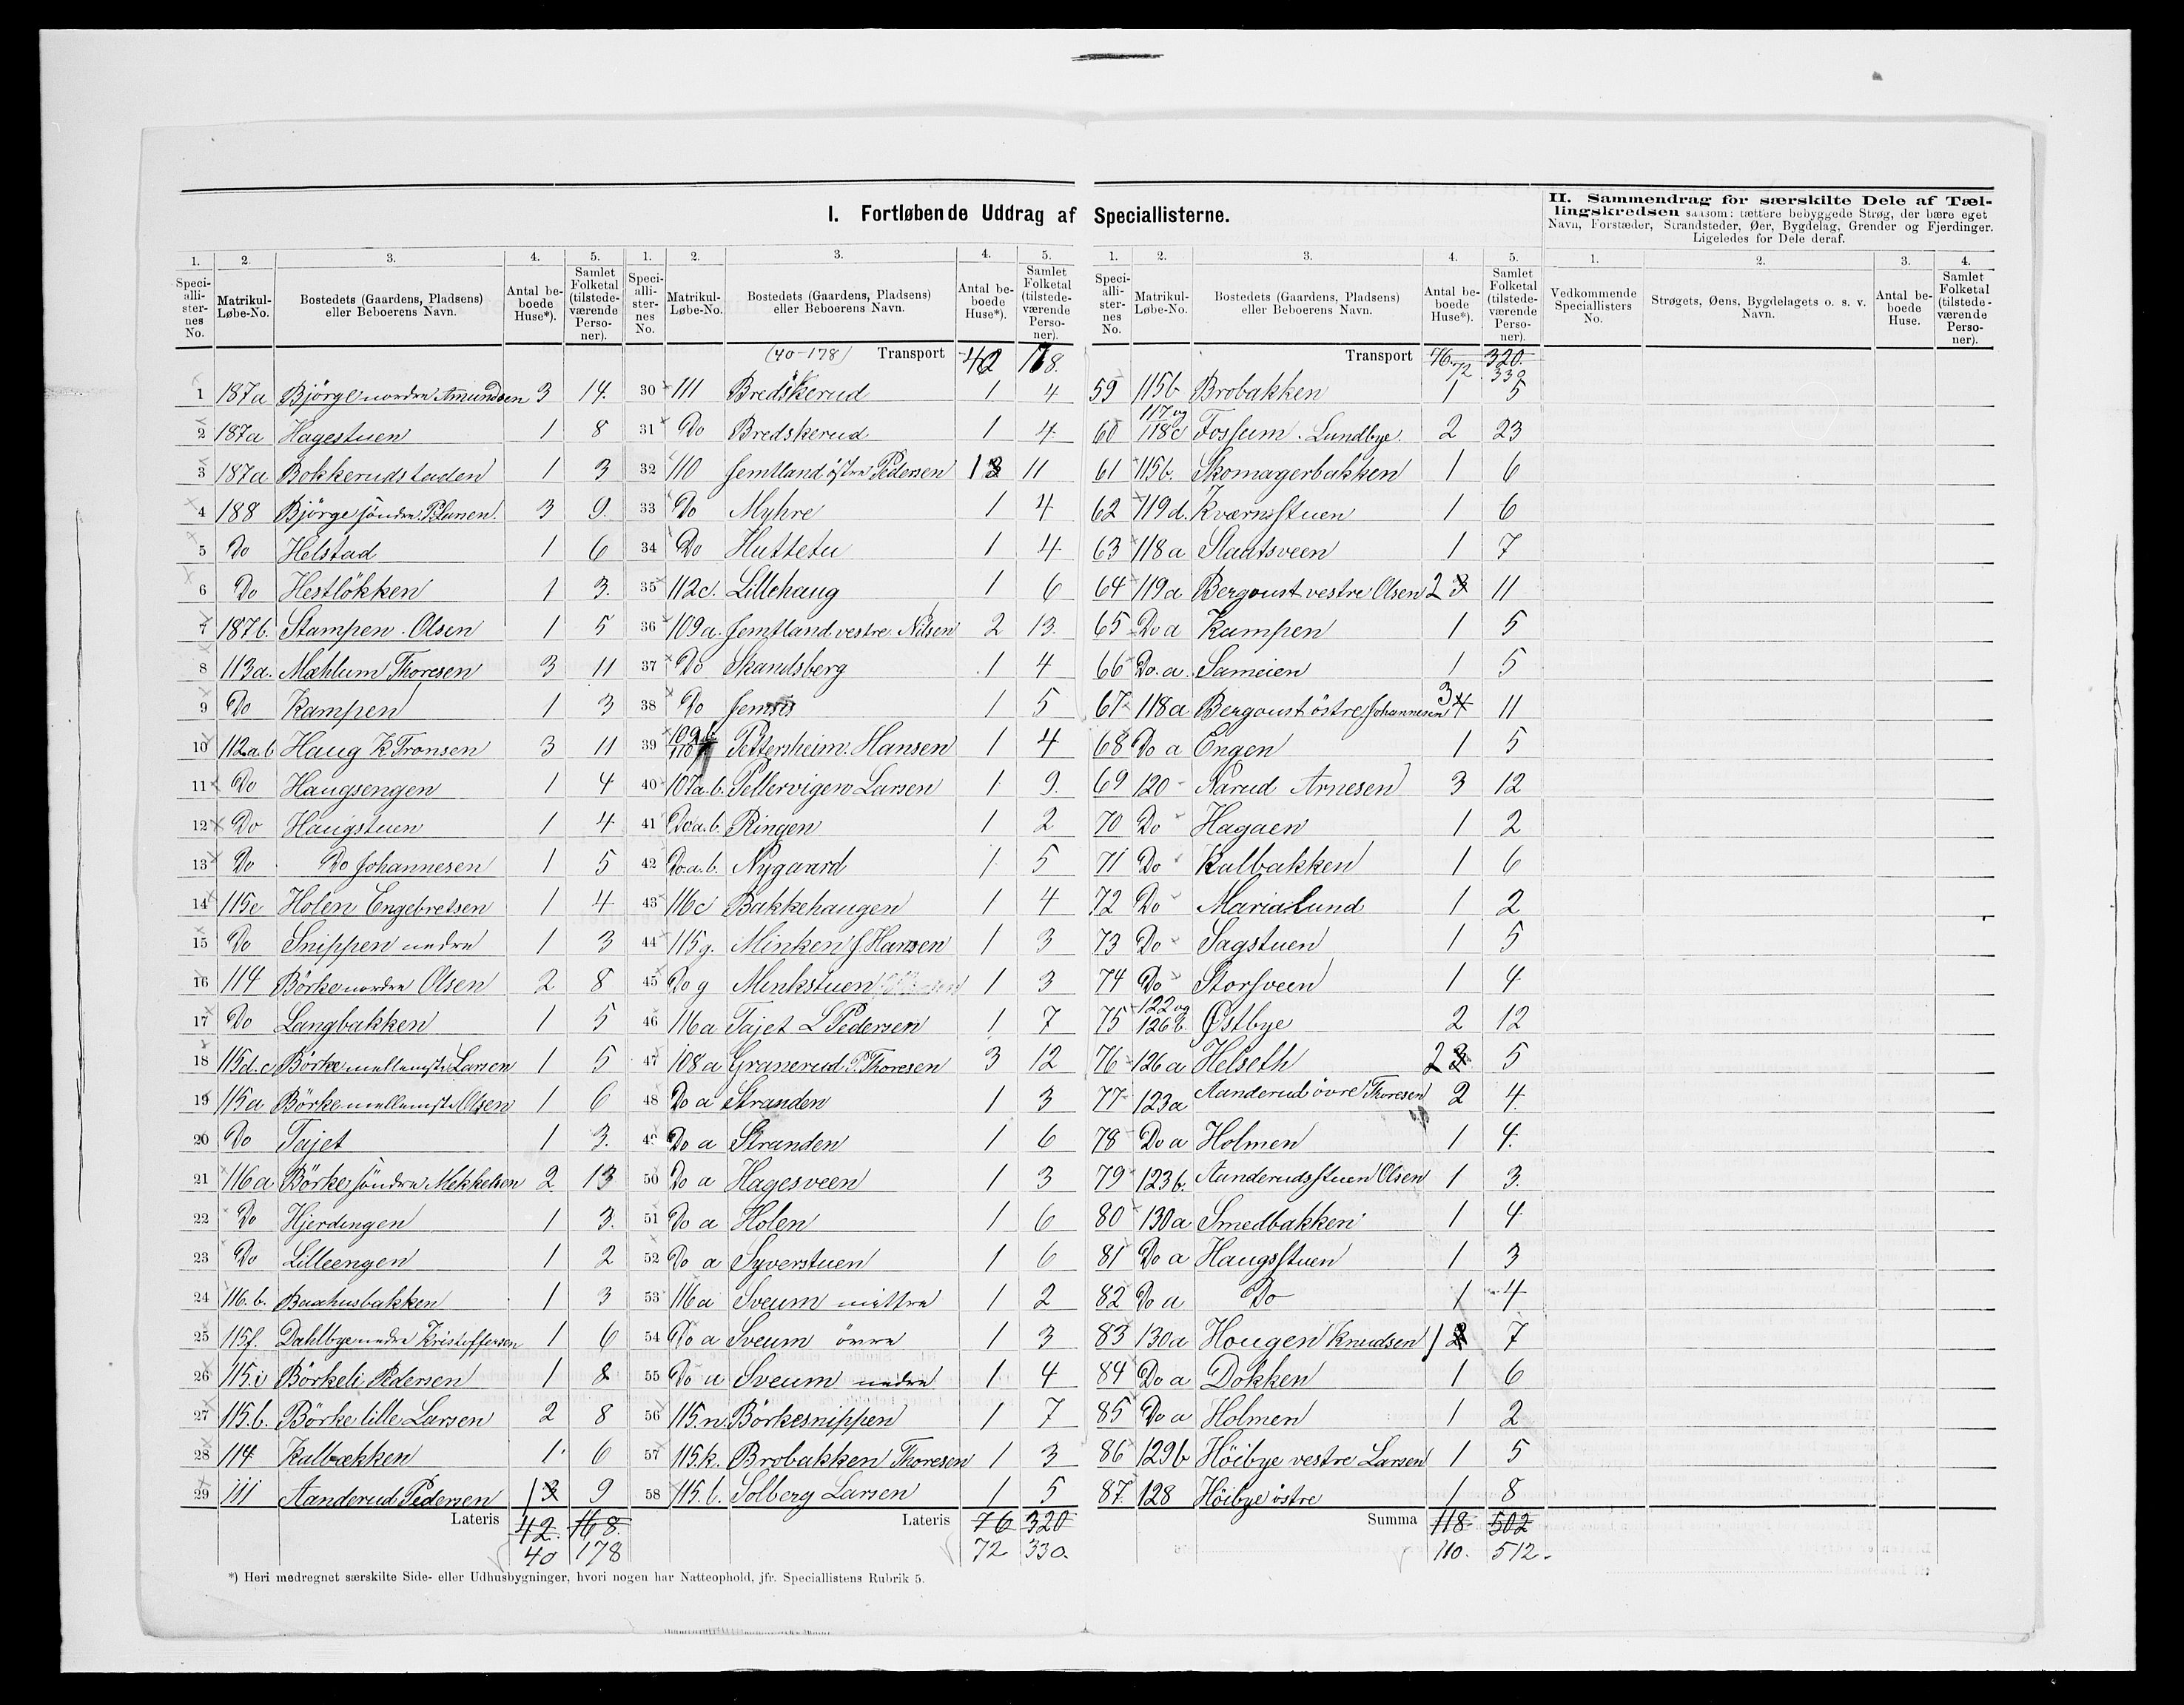 I. Fortløbende Uddrag af Speciallisterne.
II. Sammendrag for særskilte Dele af Tæl-
lingskredsen saasom: tættere bebyggede Strøg, der bære eget
Navn, Forstæder, Strandsteder, Øer, Bygdelag, Grender og Fjerdinger.
Ligeledes for Dele deraf.
1. 2. 3. 4. 5.
Speci-alli-ster-nes No. Matrikul-Løbe-No. Bostedets (Gaardens, Pladsens) eller Beboerens Navn. Antal be-boede Huse*). Samlet Folketal (tilstede-værende Perso-ner).
1 187a Bjørge nordre Amundsen 3 14.
2 187a Hagestuen 1 8
3 187a Bokkerudstaden 1 3
4 188 Bjørge søndre P. Larsen. 3 9.
5 Do Helstad 1 6
6 Do Hestløkken 1 3.
7 187b. Stampen. Olsen 1 5
8 113a. Mæhlum Thoresen 3 11
9 Do Kampen 1 3
10 112a.b Haug K Tronsen 3 11
11 Do Haugsengen 1 4
12 Do Haugstuen 1 4
13 Do Do Johannesen 1 5
14 115e Holen Engebretsen 1 4
15 Do Snippen nedre 1 3
16 114 Børke nordre Olsen 2 8
17 Do Langbakken 1 5
18 115d.c Børke mellemste Larsen 1 5
19 115a Børke mellemste Olsen 1 6
20 Do Tajet 1 3.
21 116a Børke søndre Mekkelsen 2 13
22 Do Hjerdingen 1 3.
23 Do Lilleengen 1 2
24 116.b. Baahusbakken 1 3
25 115f. Dahlbye nedre Kristoffersen 1 6
26 115.i Børkeli Pedersen 1 8
27 115.b. Børke lille Larsen 2 8
28 114 Kalbækken 1 6
29 111 Aanderud Pedersen 1 3 9
Lateris 42. 168.
40 178
1. 2. 3. 4. 5.
Speci-alli-ster-nes No. Matrikul-Løbe-No. Bostedets (Gaardens, Pladsens) eller Beboerens Navn. Antal be-boede Huse*). Samlet Folketal (tilstede-værende Perso-ner).
(40-178) Transport 42 168.
30 111 Bredskerud 1 4
31 Do Bredskerud 1 4.
32 110 Jemtland østre Pedersen 1 3 11
33 Do Myhre 1 4
34 Do Huttetu 1 4
35 112c. Lillehaug 1 6
36 109a. Jemtland vestre Nilsen 2 13.
37 Do Skandsberg 1 4
38 Do 1 5
39 109b Pettersheim. Hansen 1 4
40 107a.b. Pellervigen Larsen 1 9.
41 Do.a.b. Ringen 1 2
42 Do.a.b. Nygaard 1 5
43 116c Bakkehaugen 1 4
44 115g. Minken J. Hansen 1 3
45 Do g Minkstuen 1 3
46 116a Tajet L Pedersen 1 7
47 108a Granerud P. Thoresen 3 12
48 Do a Stranden 1 3
49 Do a Stranden 1 6
50 Do a Hagesveen 1 3
51 Do a Holen 1 6
52 Do a Syverstuen 1 6
53 116a Sveum mittre 1 2
54 Do a Sveum øvre 1 3
55 Do a Sveum nedre 1 4
56 115.n. Børkesnippen 1 7
57 115.k. Brobakken Thoresen 1 3
58 115.l. Solberg Larsen 1 5
Lateris 76 320
72 330.
1. 2. 3. 4. 5.
Speci-alli-ster-nes No. Matrikul-Løbe-No. Bostedets (Gaardens, Pladsens) eller Beboerens Navn. Antal be-boede Huse*). Samlet Folketal (tilstede-værende Perso-ner).
Transport 76. 320.
72 330
59 115b Brobakken 1 5
60 117 og 118c Fossum. Lundbye. 2 23
61 115b. Skomagerbakken 1 6
62 119d. Kværnstuen 1 6
63 118a Staatsveen 1 7
64 119a Bergoust vestre Olsen 2 3 11
65 Do a Kampen 1 5
66 Do. a. Sameien 1 5
67 118a Bergoust østre Johannesen 3 4 11
68 Do a Engen 1 5
69 120 Narud Arnesen 3 12
70 Do Hagaen 1 2
71 Do Kalbakken 1 6
72 Do MariaLund 1 2
73 Do Sagstuen 1 5
74 Do Storsveen 1 4
75 122 og 126b. Østbye 2 12
76 126a Helseth 2 3 5
77 123a Aanderud øvre Thoresen 2 4.
78 Do a Holmen 1 4.
79 123b. Aanderudsstuen Olsen 1 3.
80 130a Smedbakken 1 4
81 Do a Haugsstuen 1 3
82 Do a Do 1 4
83 130a Hougen Knudsen 1 2 7
84 Do a Dokken 1 6
85 Do a Holmen 1 2
86 129b Høibye vestre Larsen 1 5
87. 128 Høibye østre 1 8
Summa 118. 502
110. 512.
1. 2. 3. 4.
Vedkommende Speciallisters No. Strøgets, Øens, Bygdelagets o. s. v. Navn. Antal be-boede Huse. Samlet Folketal (tilstede-værende Perso-ner).
*) Heri medregnet særskilte Side- eller Udhusbygninger, hvori nogen har Natteophold, jfr. Speciallistens Rubrik 5.